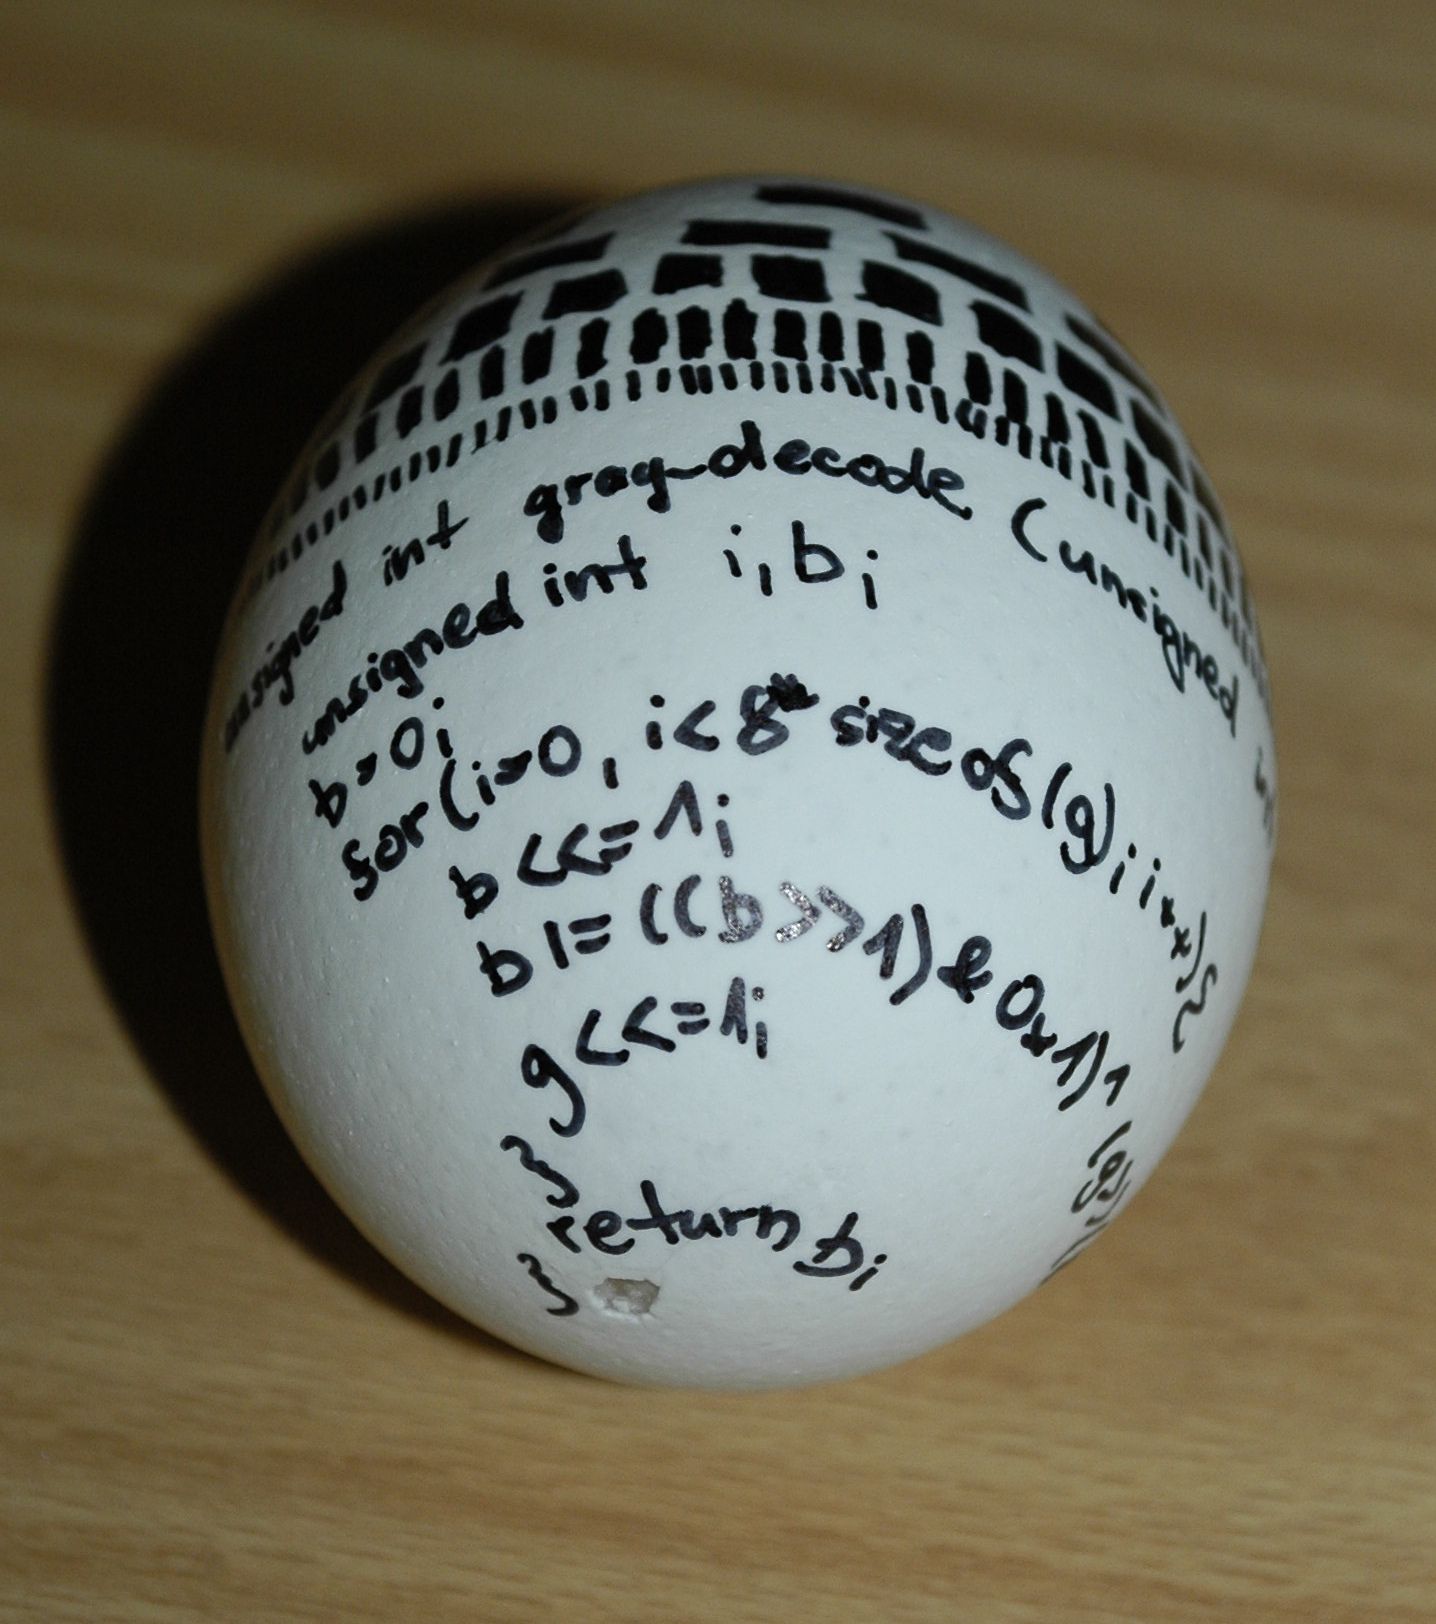 unsigned int gray_decode (unsigned int
unsigned int i,b;
b=0;
for(i=0, i<8* sizeof(g); i++){
b <<= 1;
b |= ((b>>1) & 0x1)^ (g>>
g <<= 1;
}
return b;
}